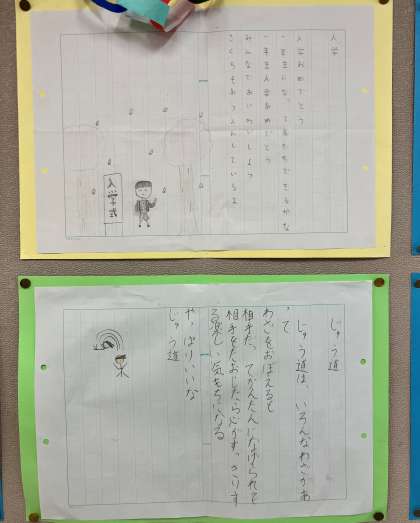 入学
入学おめでとう
一年生になって友だちできるかな
一年生入学おめでとう
みんなでおいわいしよう
さくらもおうえんしているよ
入学式
じゅう道
じゅう道は、いろんなわざがあ
って
わざをおぼえると
相手だってかんたんになげられて
相手をたおしたら心がすっきりす
る楽しい気もちになる
やっぱりいいな
じゅう道